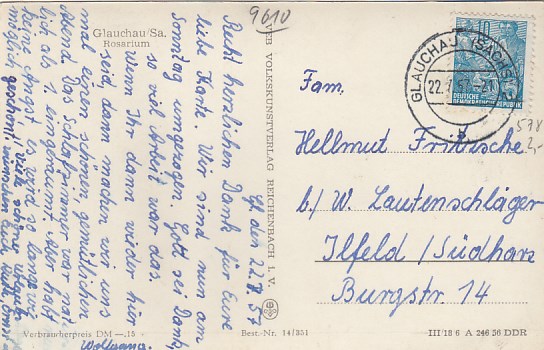 Glauchau/Sa.
Rosarium
9610
Gl. den 22.7.57
Recht herzlichen Dank für Eure
liebe Karte. Wir sind nun am
Sonntag umgezogen. Gott sei Dank,
so viel Arbeit war das.
Wenn Ihr dann wieder hier
seid, dann machen wir uns
mal einen schönen, gemütlichen
Abend. Das Schlafzimmer war näm-
lich als 1. eingeräumt. Aber habt
keine Angst, es wird so lange wie
möglich geschont! Viele schöne
wünschen Euch
Wolfgang.
VEB VOLKSKUNSTVERLAG REICHENBACH I. V.
Verbraucherpreis DM —.15
Best.-Nr. 14/351
III 18 6 A 246 56 DDR
10
DEUTSCHE
DEMOKRATISCHE REPUBLIK
GLAUCHAU (SACHS)
22.7.57
578
2,-
Fam.
Hellmut Fritzsche
b./W. Lautenschläger
Ilfeld/Südharz
Burgstr. 14